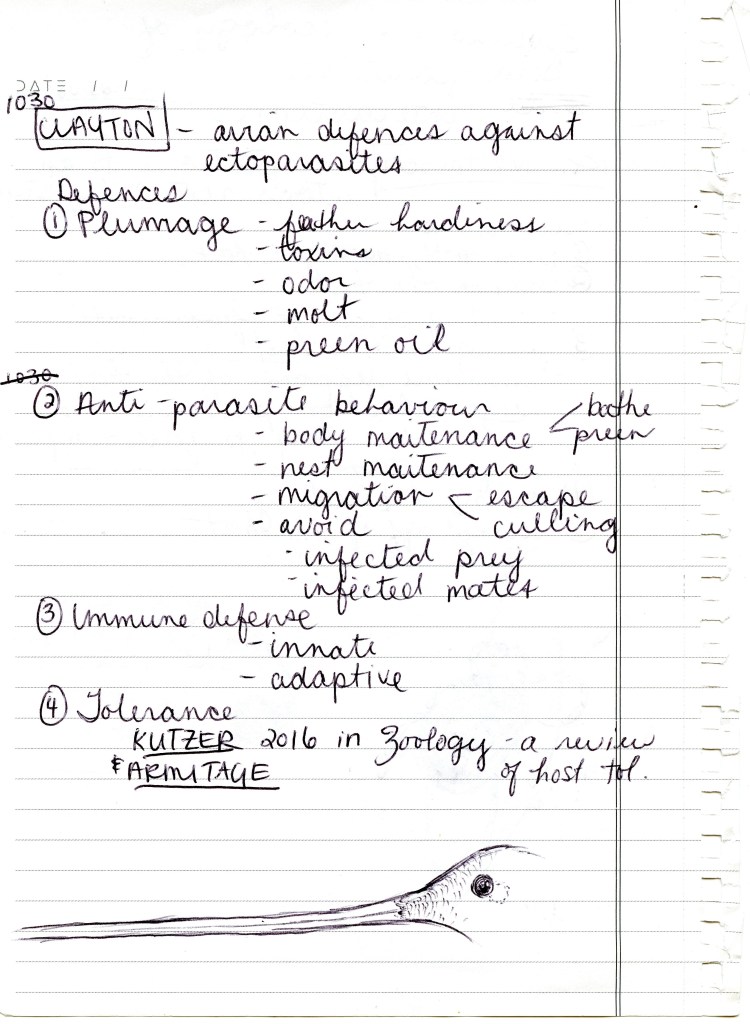 DATE / /
1030
CLAYTON - avian defences against
ectoparasites
Defences
① Plumage - feather hardiness
- toxins
- odor
- molt
- preen oil
1030
② Anti-parasite behaviour
- body maitenance < bathe
preen
- nest maitenance
- migration < escape
culling
- avoid
- infected prey
- infected mates
③ Immune defense
- innate
- adaptive
④ Tolerance
KUTZER 2016 in Zoology - a review
& ARMITAGE of host tol.